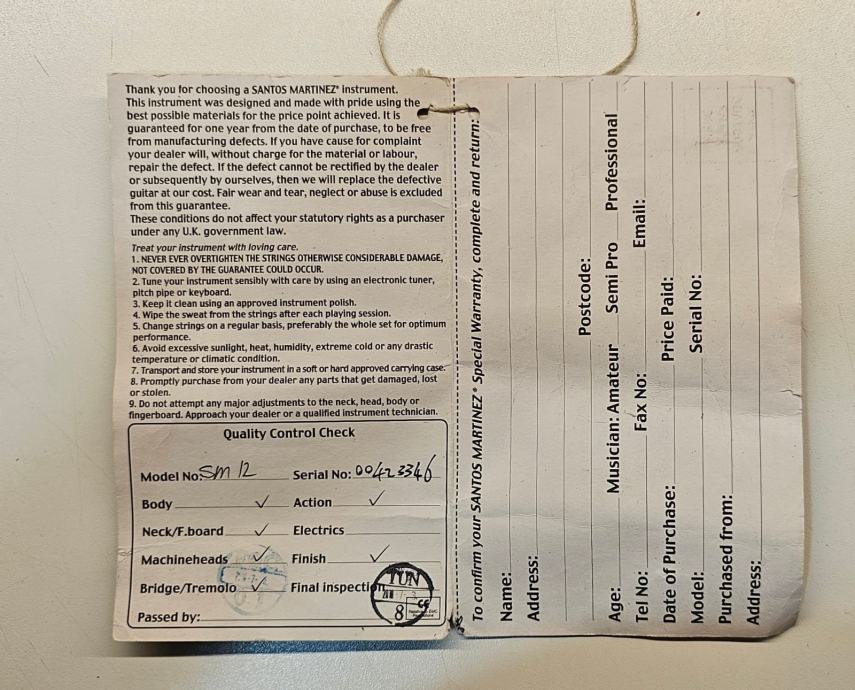 Thank you for choosing a SANTOS MARTINEZ® instrument.
This instrument was designed and made with pride using the
best possible materials for the price point achieved. It is
guaranteed for one year from the date of purchase, to be free
from manufacturing defects. If you have cause for complaint
your dealer will, without charge for the material or labour,
repair the defect. If the defect cannot be rectified by the dealer
or subsequently by ourselves, then we will replace the defective
guitar at our cost. Fair wear and tear, neglect or abuse is excluded
from this guarantee.
These conditions do not affect your statutory rights as a purchaser
under any U.K. government law.
Treat your instrument with loving care.
1. NEVER EVER OVERTIGHTEN THE STRINGS OTHERWISE CONSIDERABLE DAMAGE,
NOT COVERED BY THE GUARANTEE COULD OCCUR.
2. Tune your instrument sensibly with care by using an electronic tuner,
pitch pipe or keyboard.
3. Keep it clean using an approved instrument polish.
4. Wipe the sweat from the strings after each playing session.
5. Change strings on a regular basis, preferably the whole set for optimum
performance.
6. Avoid excessive sunlight, heat, humidity, extreme cold or any drastic
temperature or climatic condition.
7. Transport and store your instrument in a soft or hard approved carrying case.
8. Promptly purchase from your dealer any parts that get damaged, lost
or stolen.
9. Do not attempt any major adjustments to the neck, head, body or
fingerboard. Approach your dealer or a qualified instrument technician.
Quality Control Check
Model No: SM 12 Serial No: 00423346
Body ✓ Action ✓
Neck/F.board ✓ Electrics
Machineheads ✓ Finish ✓
Bridge/Tremolo ✓ Final inspection
Passed by:
TUN
8
CE
To confirm your SANTOS MARTINEZ® Special Warranty, complete and return:
Name:
Address:
Postcode:
Age: Musician: Amateur Semi Pro Professional
Tel No: Fax No: Email:
Date of Purchase: Price Paid:
Model: Serial No:
Purchased from:
Address: